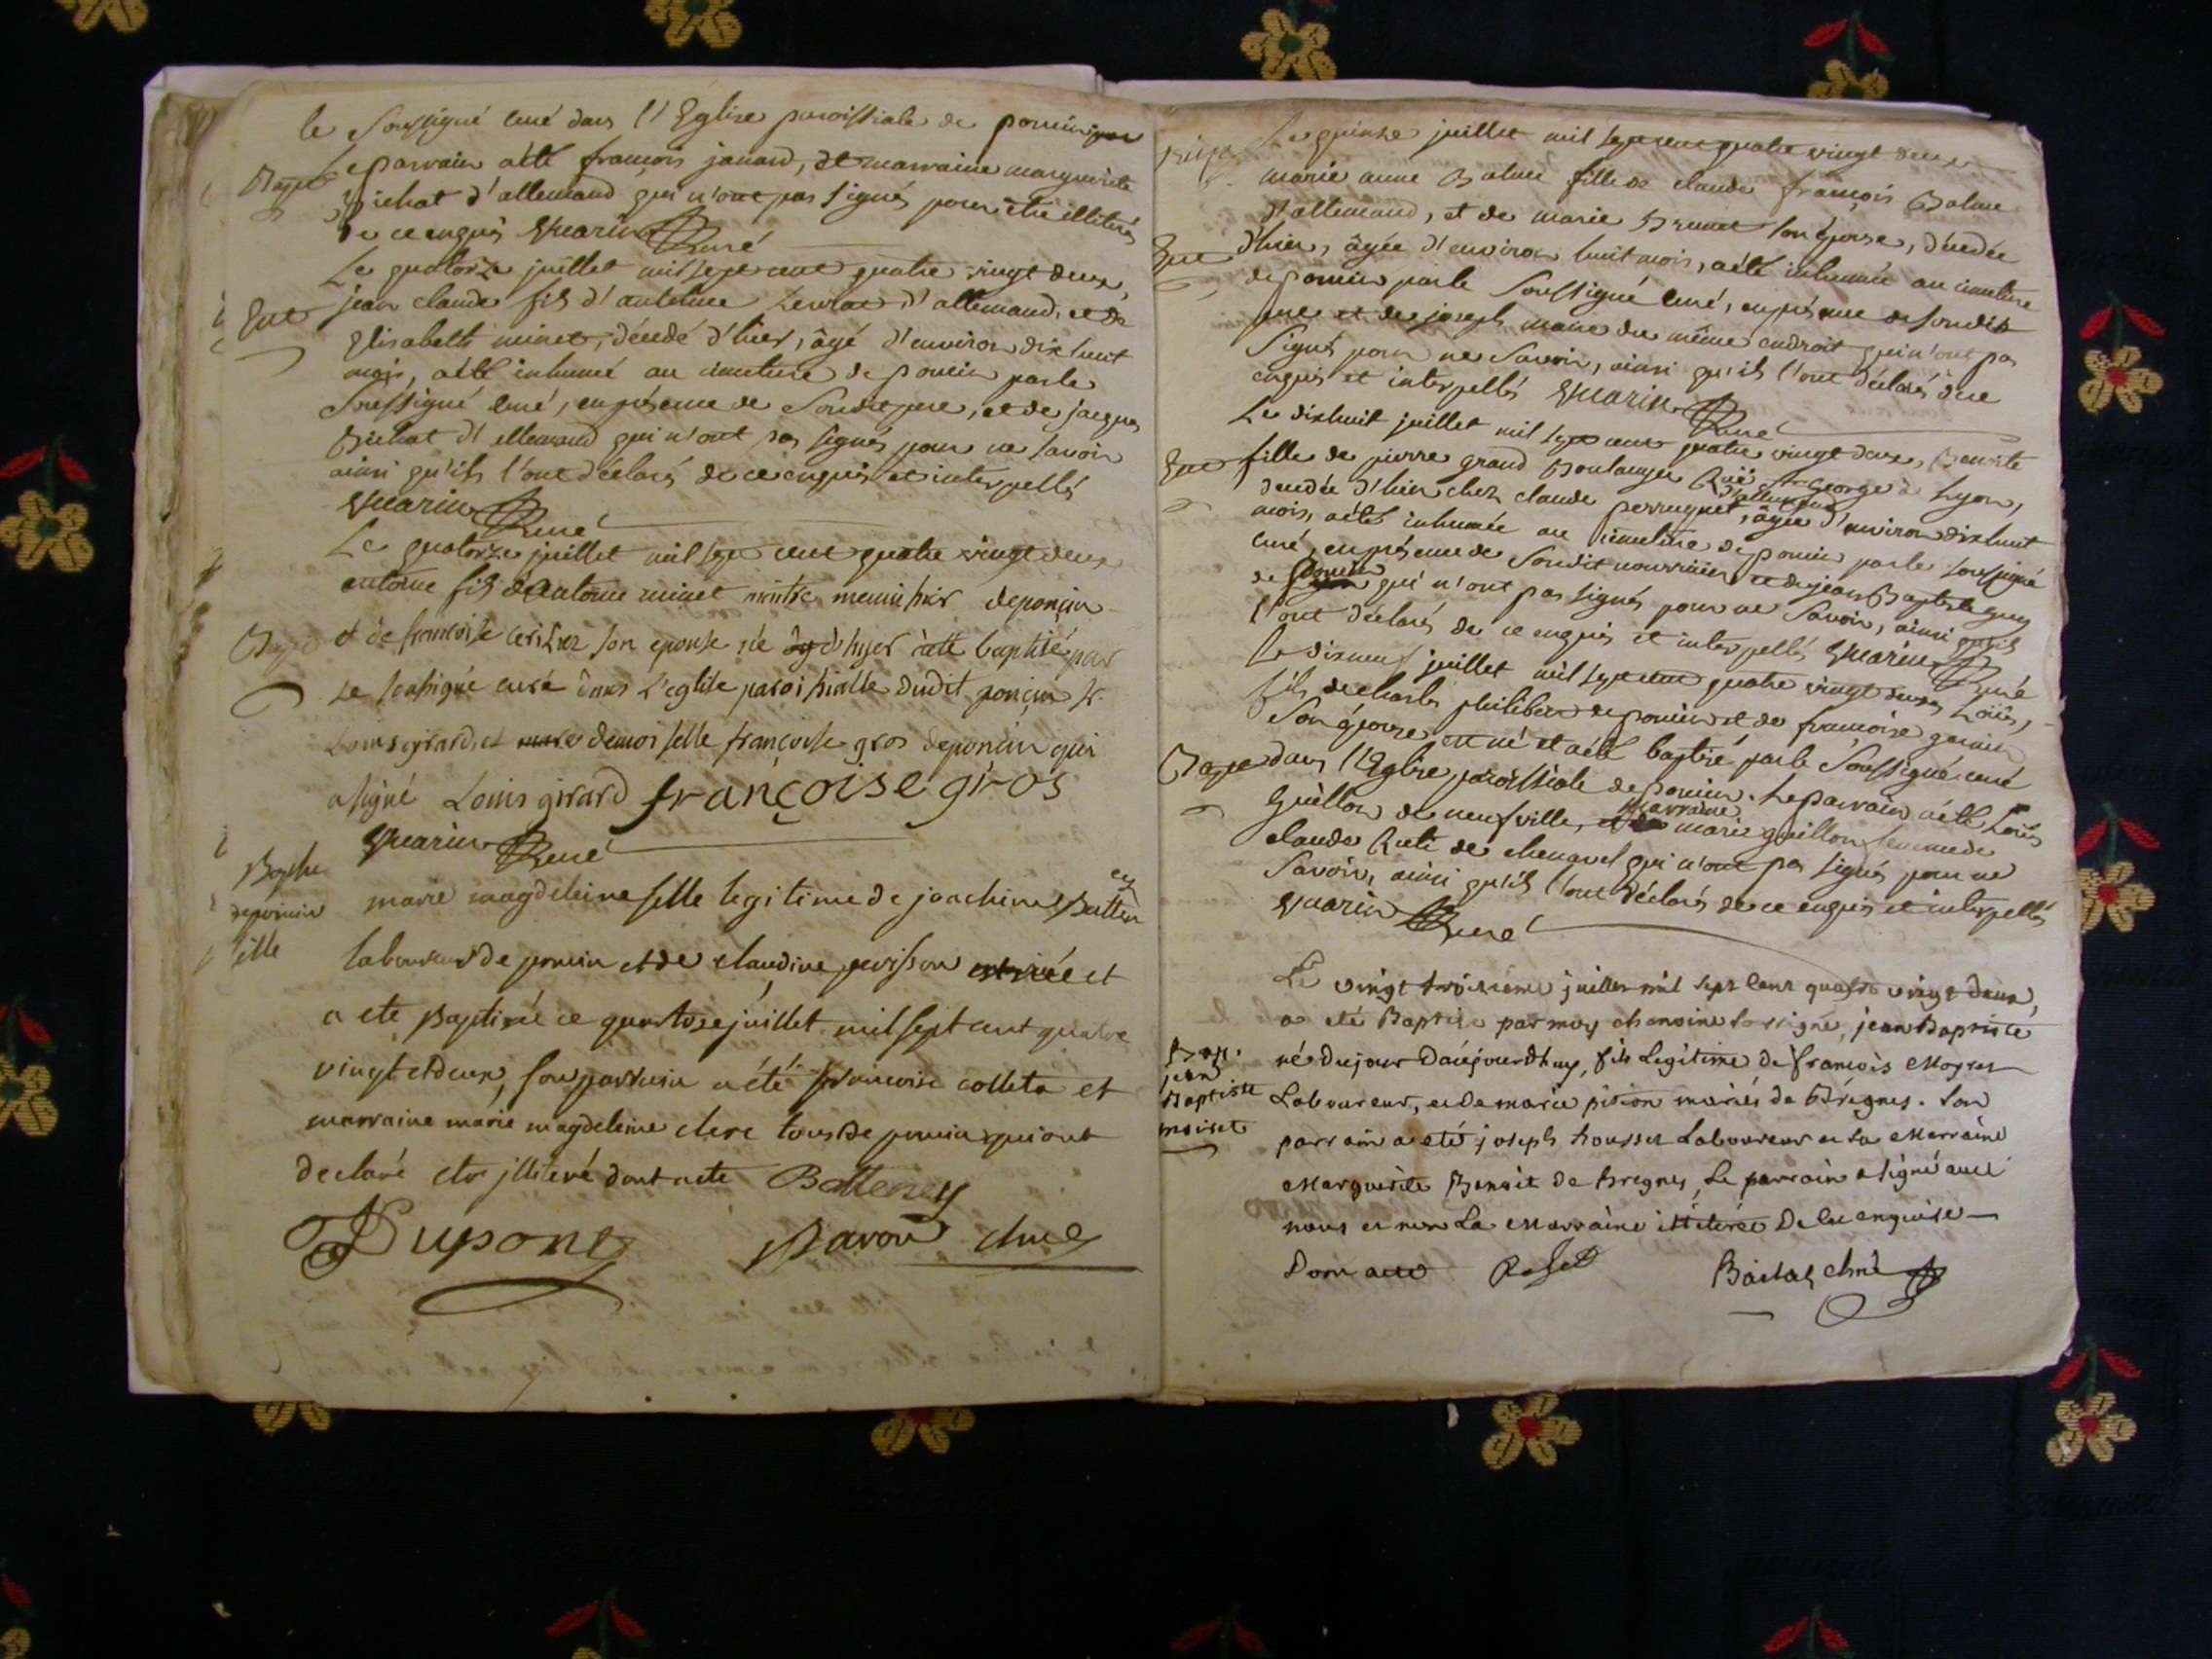 le soussigné curé dans l'Eglise paroissiale de poncin
Bapt le parrain a été françois janard, et marraine marguerite
Bichat d'allemand qui n'ont pas signés pour être illiterés
de ce enquis Guarin Curé
Le quatorze juillet mil sept cent quatre vingt deux,
jean claude fils d'antoine d'allemand, et de
Ent
Elisabeth minet, décédé d'hier, âgé d'environ dix huit
mois, a été inhumé au cimetiere de poncin par le
soussigné curé, en présence de sondit pere, et de jacques
Bichat d'allemand qui n'ont pas signés pour ne savoir
ainsi qu'ils l'ont déclarés de ce enquis et interpellés
Guarin Curé
Le quatorze juillet mil sept cent quatre vingt deux
antoine fils d'Antoine minet maitre menuisier de poncin
Bapt et de francoise son epouse né d'hyer a été baptisé par
le soussigné curé dans l'eglise paroissialle dudit poncin sr.
Louis girard, et demoiselle françoise gros de poncin qui
a signé Louis girard françoise gros
Guarin Curé
Bapthe
de poncin
fille
ey
marie magdeleine fille legitime de joachim Batten
laboureur de poncin et de claudine perisson née et
a ete Baptisée ce quatorze juillet mil sept cent quatre
vingt et deux, son parrain a été francoise colleta et
marraine marie magdeleine clerc tous de poncin qui ont
declaré etre illiteré dont acte Batteney
Dupont Bavou chne
Le quinze juillet mil sept cent quatre vingt deux
marie anne Balme fille de claude françois Balme
d'allemand, et de marie Brunet son épouse, décédée
Ent d'hier, âgée d'environ huit mois, a été inhumée au cimetiere
de poncin par le soussigné curé, en présence de sondit
pere et de joseph marie du même endroit qui n'ont pas
signés pour ne savoir, ainsi qu'ils l'ont déclarés de ce
enquis et interpellés Guarin Curé
Le dix huit juillet mil sept cent quatre vingt deux, Benoite
Ent fille de pierre grand Boulanger Rüe St George à Lyon,
d'allemand
décédée d'hier chez claude perruquet, âgée d'environ dix huit
mois, a été inhumée au cimetiere de poncin par le soussigné
curé, en présence de sondit nourricier et de jean Baptiste guy
poncin
de qui n'ont pas signés pour ne savoir, ainsi qu'ils
l'ont déclarés de ce enquis et interpellés Guarin Curé
Le dix neuf juillet mil sept cent quatre vingt deux Loüis,
fils de charles philibert de poncin et de francoise
son épouse, est né et a été baptisé par le soussigné curé
Bapt dans l'Eglise paroissiale de poncin. Le parrain a été Loüis
Marraine
Guillon de neufville, marie guillon femme de
claude de chenavel qui n'ont pas signés pour ne
savoir, ainsi qu'ils l'ont déclarés de ce enquis et interpellés
Guarin Curé
Le vingt troisième juillet mil sept cent quatre vingt deux,
a eté Baptisé par moy chanoine soussigné, jean Baptiste
Bap.
jean
Baptiste
moiret
né du jour D'aujourdhuy, fils Legitime de françois
Laboureur, et de marie pition mariés de Brégnes. son
parrain a eté joseph trousset Laboureur et sa Marraine
Marguerite Benoit de bregnes, Le parrain a signé avec
nous et non La Marraine illiterée De ce enquise
Dont acte chne